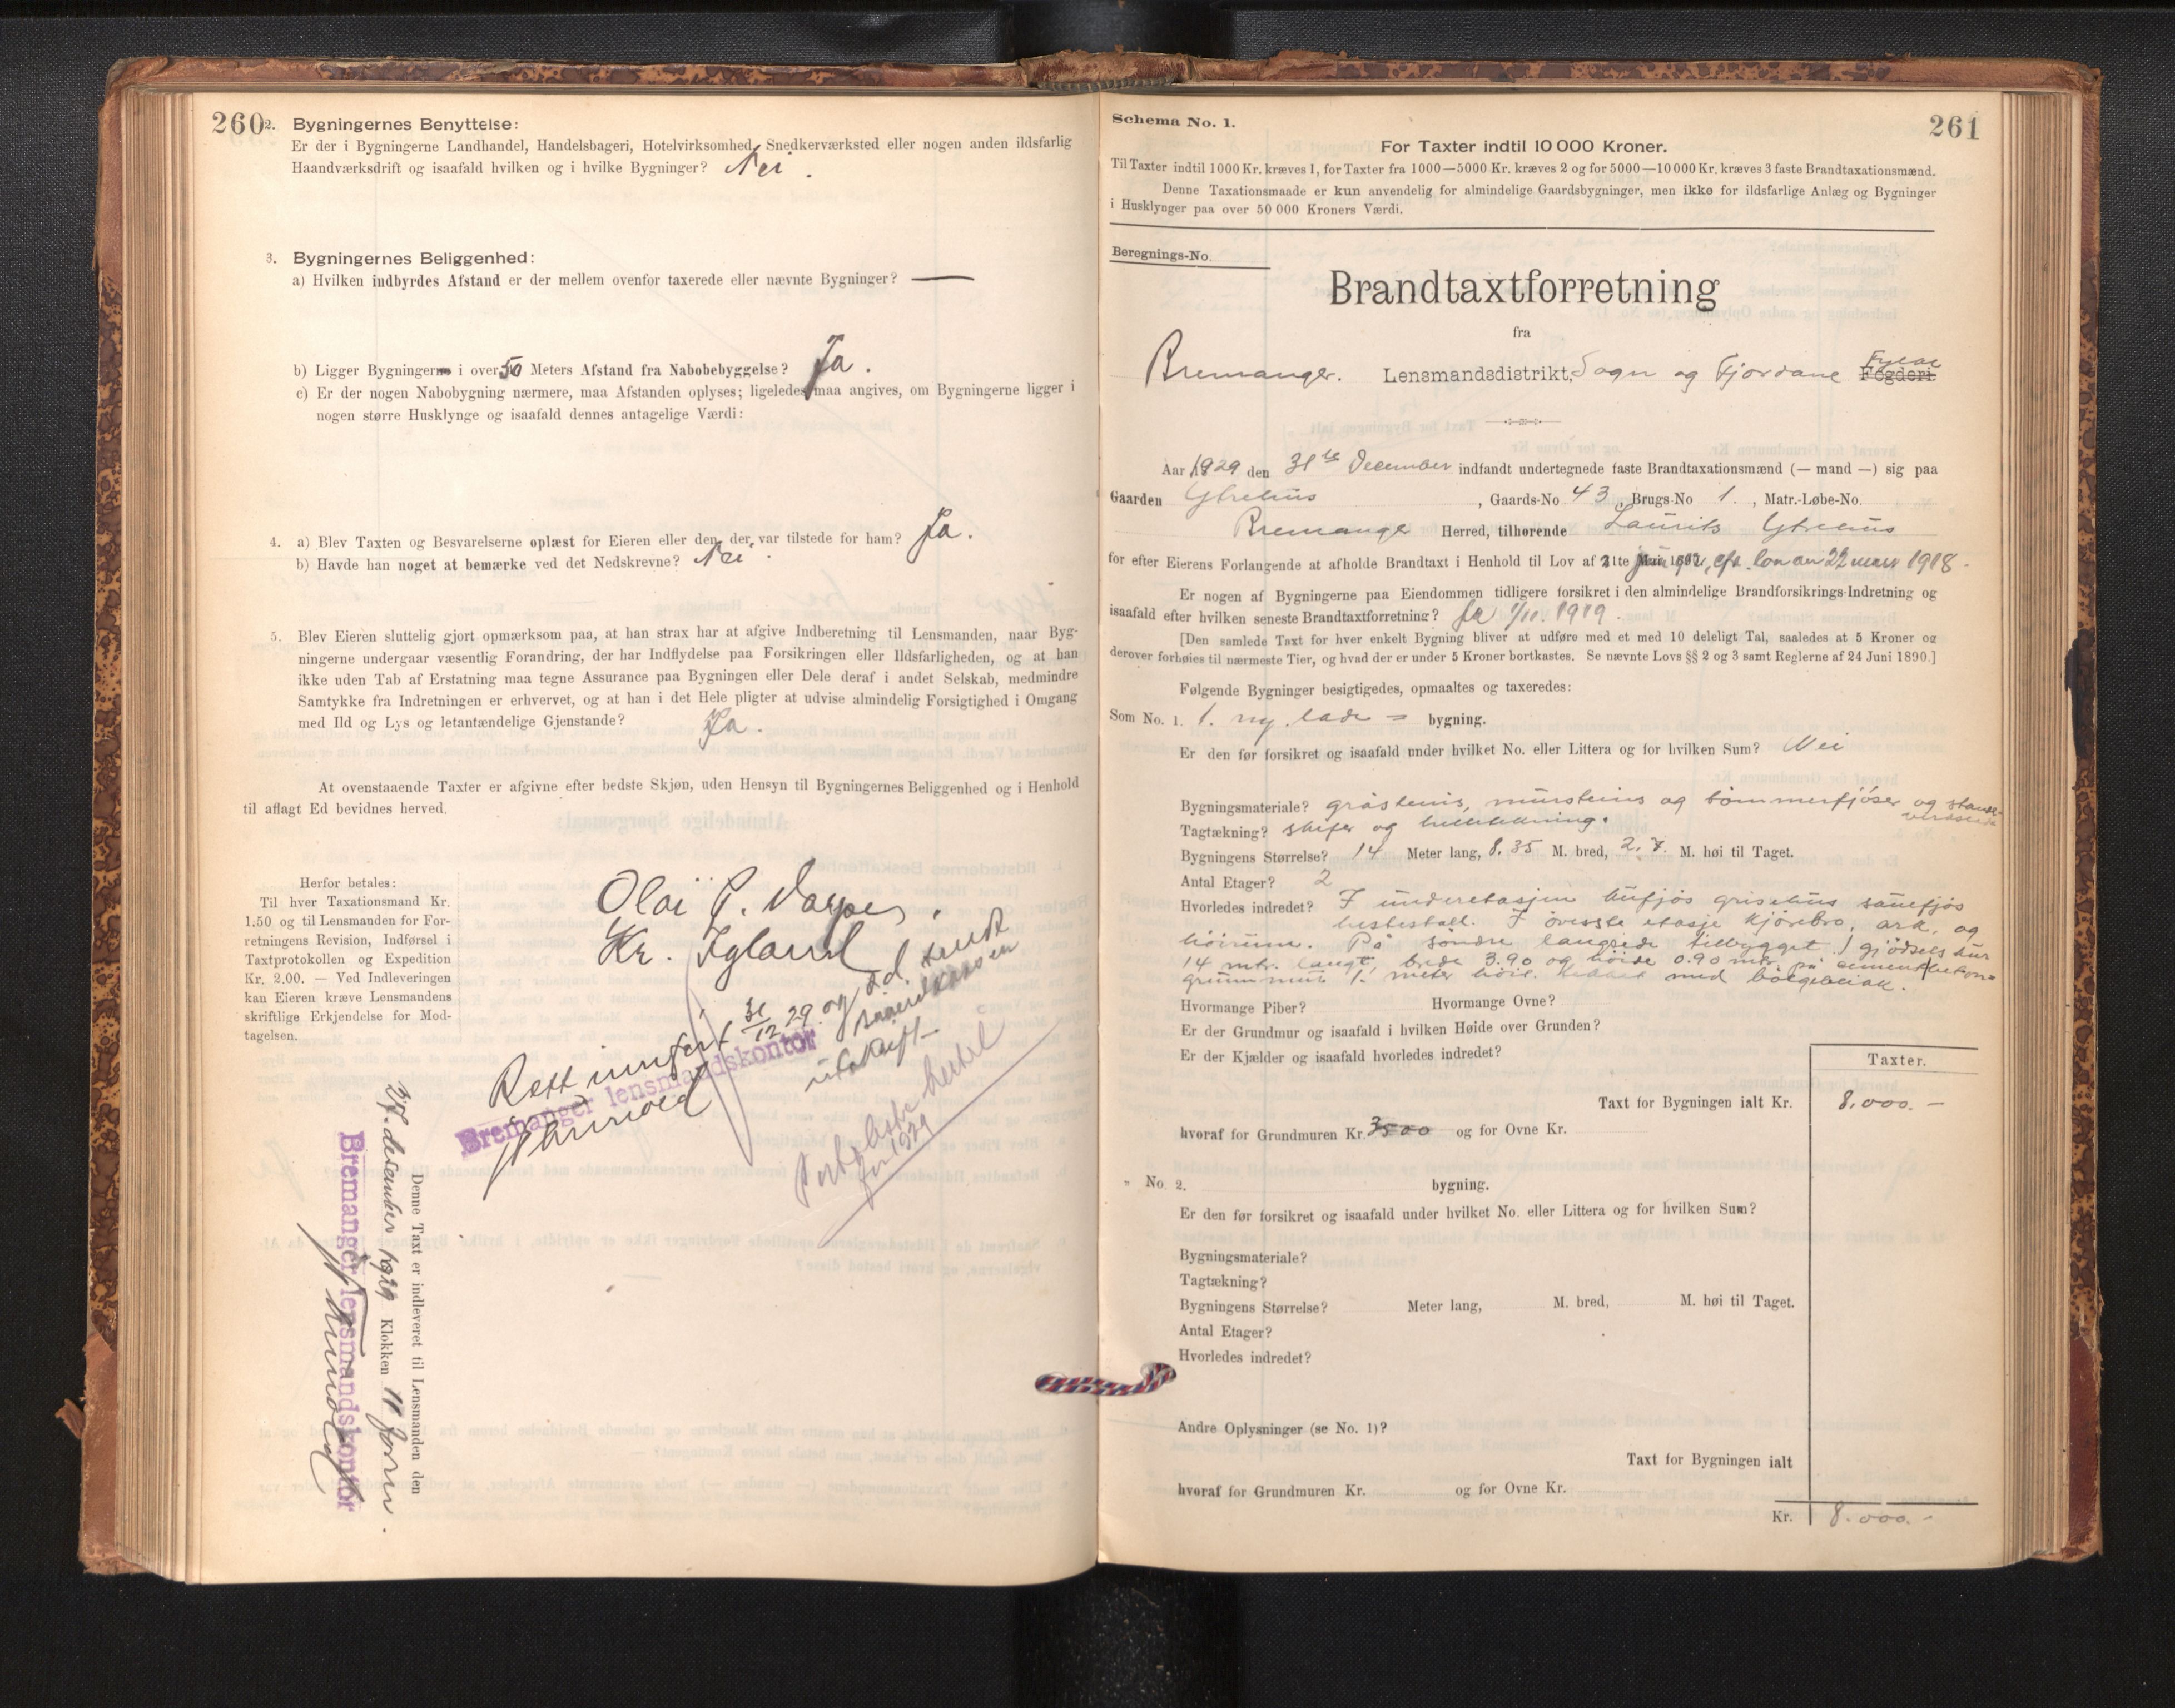 260
2. Bygningernes Benyttelse:
Er der i Bygningerne Landhandel, Handelsbageri, Hotelvirksomhed, Snedkerværksted eller nogen anden ildsfarlig
Haandværksdrift og isaafald hvilken og i hvilke Bygninger? Nei.
3. Bygningernes Beliggenhed:
a) Hvilken indbyrdes Afstand er der mellem ovenfor taxerede eller nævnte Bygninger? —
b) Ligger Bygningerne i over 50 Meters Afstand fra Nabobebyggelse? Ja.
c) Er der nogen Nabobygning nærmere, maa Afstanden oplyses; ligeledes maa angives, om Bygningerne ligger i
nogen større Husklynge og isaafald dennes antagelige Værdi:
4. a) Blev Taxten og Besvarelserne oplæst for Eieren eller den, der var tilstede for ham? Ja.
b) Havde han noget at bemærke ved det Nedskrevne? Nei.
5. Blev Eieren sluttelig gjort opmærksom paa, at han strax har at afgive Indberetning til Lensmanden, naar Byg-
ningerne undergaar væsentlig Forandring, der har Indflydelse paa Forsikringen eller Ildsfarligheden, og at han
ikke uden Tab af Erstatning maa tegne Assurance paa Bygningen eller Dele deraf i andet Selskab, medmindre
Samtykke fra Indretningen er erhvervet, og at han i det Hele pligter at udvise almindelig Forsigtighed i Omgang
med Ild og Lys og letantændelige Gjenstande? Ja.
At ovenstaaende Taxter er afgivne efter bedste Skjøn, uden Hensyn til Bygningernes Beliggenhed og i Henhold
til aflagt Ed bevidnes herved.
Herfor betales:
Til hver Taxationsmand Kr.
1,50 og til Lensmanden for For-
retningens Revision, Indførsel i
Taxtprotokollen og Expedition
Kr. 2.00. — Ved Indleveringen
kan Eieren kræve Lensmandens
skriftlige Erkjendelse for Mod-
tagelsen.
Olai P.
Kr. Igland
Rett innført 31/12 29 og s.d. sendt
utskrift
Bremanger lensmandskontor
for 1929
Denne Taxt er indleveret til Lensmanden den
31. desember 1929 Klokken 11 form.
Bremanger lensmandskontor
261
Schema No. 1.
For Taxter indtil 10 000 Kroner.
Til Taxter indtil 1000 Kr. kræves 1, for Taxter fra 1000—5000 Kr. kræves 2 og for 5000—10 000 Kr. kræves 3 faste Brandtaxationsmænd.
Denne Taxationsmaade er kun anvendelig for almindelige Gaardsbygninger, men ikke for ildsfarlige Anlæg og Bygninger
i Husklynger paa over 50 000 Kroners Værdi.
Beregnings-No.
Brandtaxtforretning
fra
Bremanger. Lensmandsdistrikt, Sogn og Fjordane Fylke Fogderi
Aar 1929 den 31te December indfandt undertegnede faste Brandtaxationsmænd (— mand —) sig paa
Gaarden Ytrehus, Gaards-No 43, Brugs-No 1., Matr.-Løbe-No.
Bremanger Herred, tilhørende Laurits Ytrehus
for efter Eierens Forlangende at afholde Brandtaxt i Henhold til Lov af 22 mars 1918.
Er nogen af Bygningerne paa Eiendommen tidligere forsikret i den almindelige Brandforsikrings-Indretning og
isaafald efter hvilken seneste Brandtaxtforretning? Ja 1/11. 1919.
[Den samlede Taxt for hver enkelt Bygning bliver at udføre med et med 10 deleligt Tal, saaledes at 5 Kroner og
derover forhøies til nærmeste Tier, og hvad der er under 5 Kroner bortkastes. Se nævnte Lovs §§ 2 og 3 samt Reglerne af 24 Juni 1890.]
Følgende Bygninger besigtigedes, opmaaltes og taxeredes:
Som No. 1. 1. ny lade = bygning.
Er den før forsikret og isaafald under hvilket No. eller Littera og for hvilken Sum? Nei
Bygningsmateriale? gråsteins, mursteins og tømmerfjøser og
Tagtækning? skifer og helletekning.
Bygningens Størrelse? 14 Meter lang, 8.35 M. bred, 2.7. M. høi til Taget.
Antal Etager? 2
Hvorledes indredet? I underetasjen kufjøs grisehus sauefjøs
hestestall. I øverste etasje kjørebro, ark, og
høirum. På søndre langside tilbygget 1 gjødselskur
14 mtr. langt, brede 3.90 og høide 0.90 mtr. på cementbetons
grunnmur 1. meter høit. tekket med bølgeblik.
Hvormange Piber? Hvormange Ovne?
Er der Grundmur og isaafald i hvilken Høide over Grunden?
Er der Kjælder og isaafald hvorledes indredet?
Taxter.
Taxt for Bygningen ialt Kr. 8.000.—
hvoraf for Grundmuren Kr. 3500 og for Ovne Kr.
" No. 2. bygning.
Er den før forsikret og isaafald under hvilket No. eller Littera og for hvilken Sum?
Bygningsmateriale?
Tagtækning?
Bygningens Størrelse? Meter lang, M. bred, M. høi til Taget.
Antal Etager?
Hvorledes indredet?
Andre Oplysninger (se No. 1)?
Taxt for Bygningen ialt
hvoraf for Grundmuren Kr. og for Ovne Kr.
Kr. 8.000.-